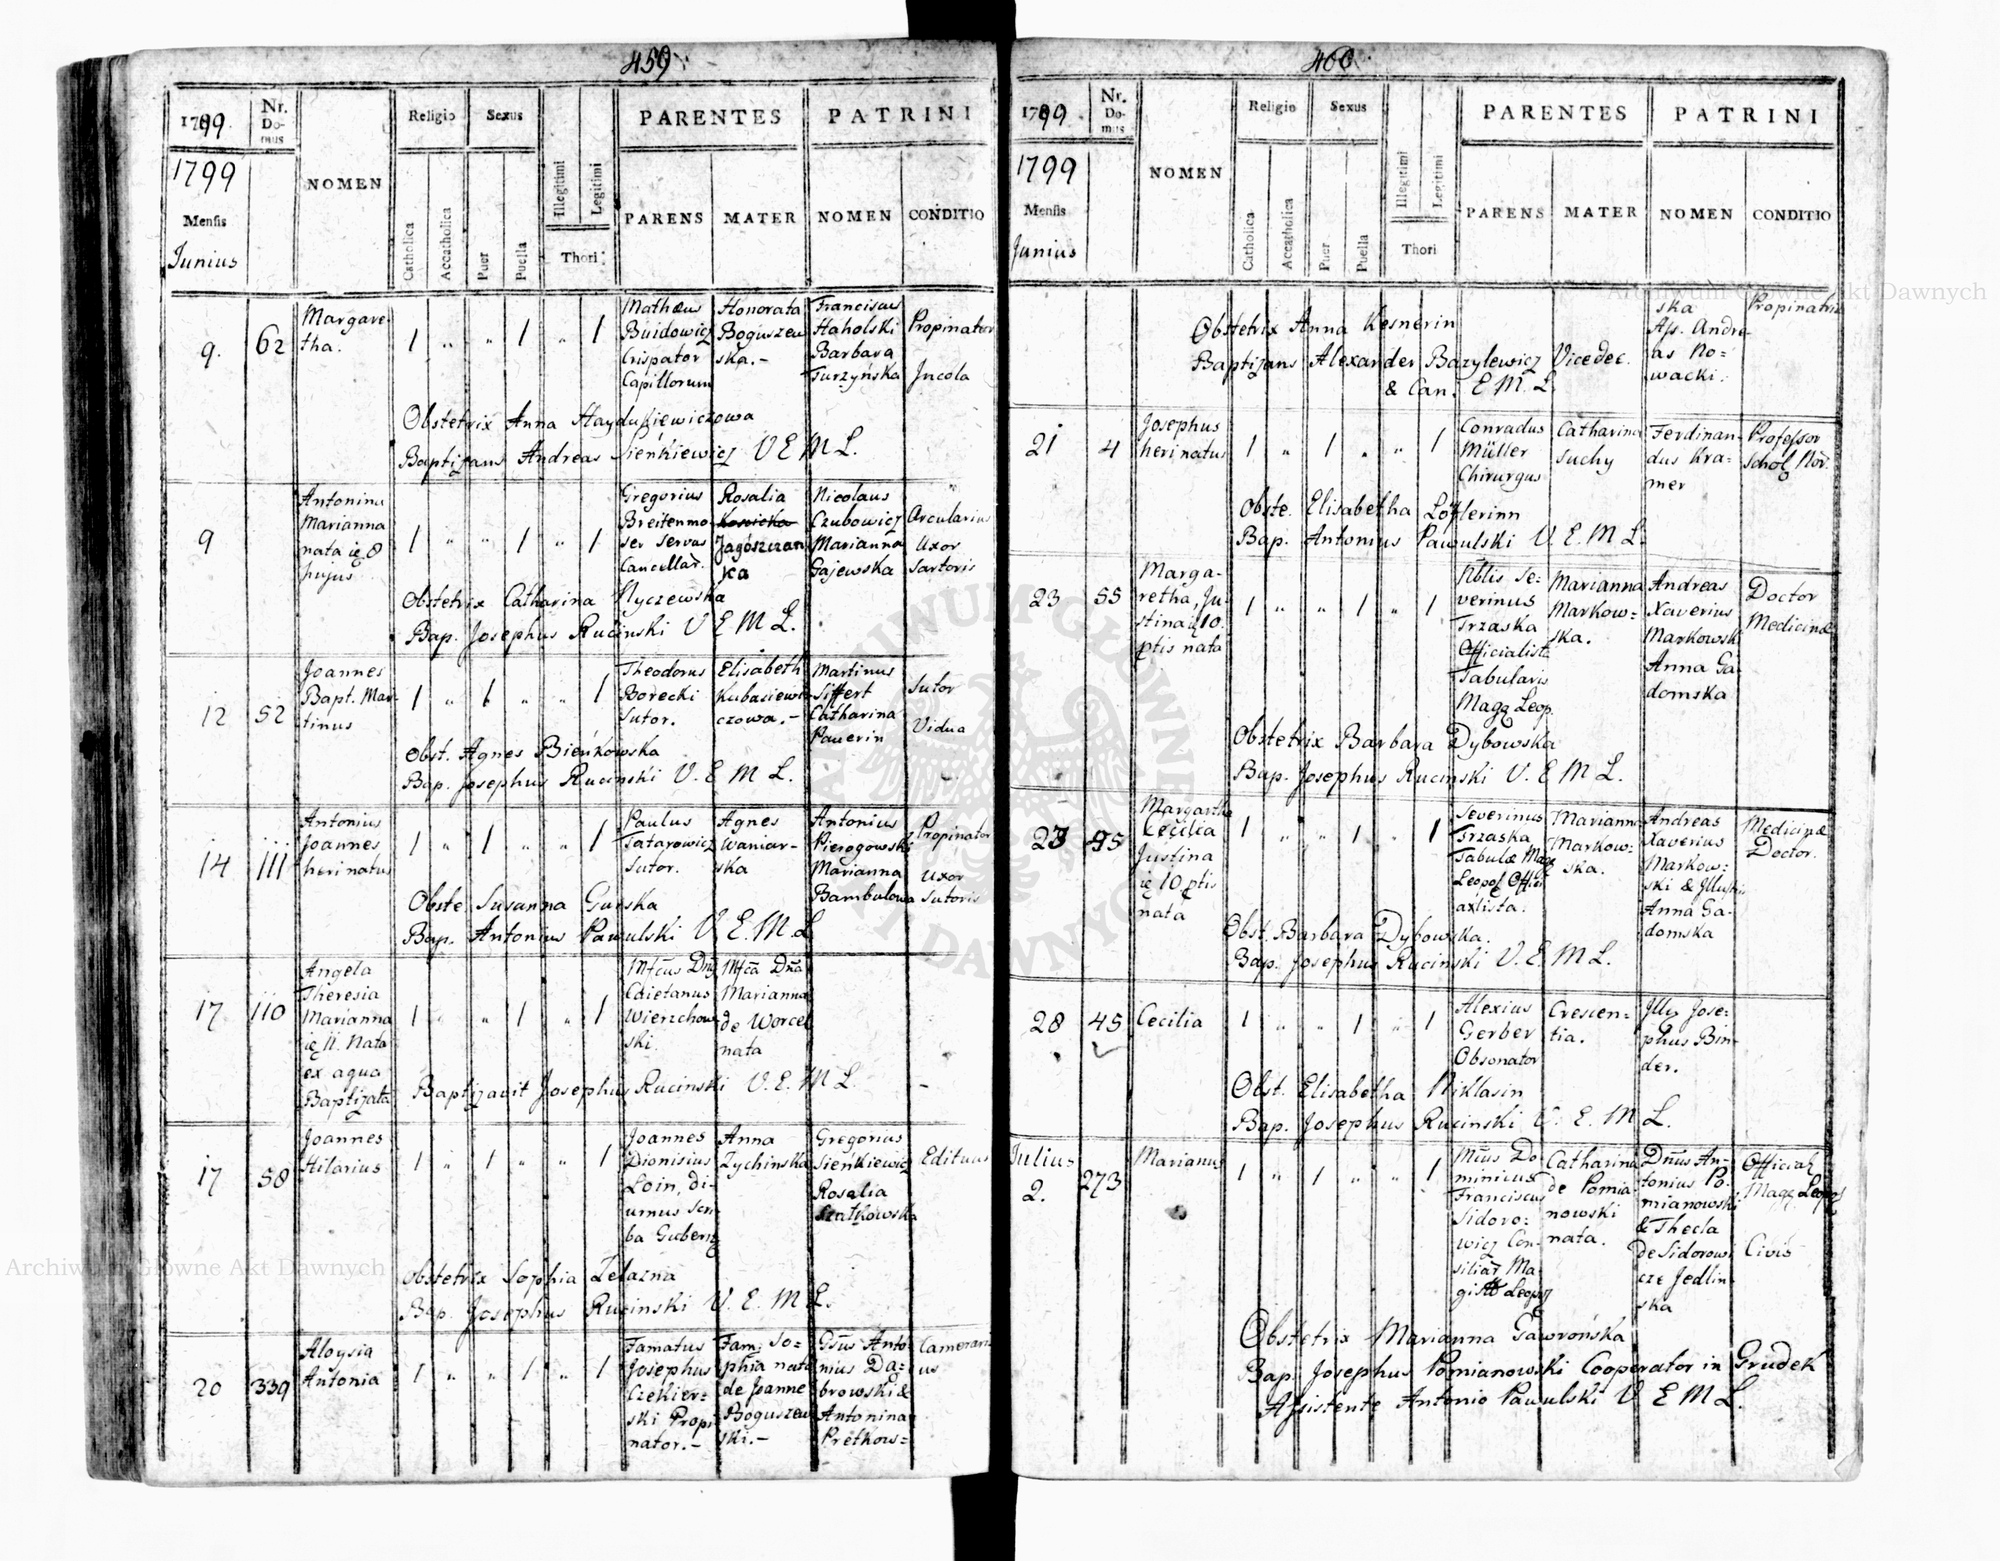 459
1799.
Nr.
Do-
mus
NOMEN
Religio
Sexus
PARENTES
PATRINI
1799
Mensis
Junius
Catholica
Accatholica
Puer
Puella
Illegitimi
Legitimi
Thori
PARENS
MATER
NOMEN
CONDITIO
9.
62
Margare-
tha.
1 " " 1 " 1
Mathæus
Buidowicz
Crispator
Capillorum
Honorata
Boguszew
ska.-
Franciscus
Haholski
Barbara
Turzyńska
Propinator
Incola
Obstetrix Anna Haydukiewiczowa
Baptizans Andreas Sieńkiewicz V E M L.
9
Antonina
Marianna
nata ię 8
hujus
1 " " 1 " 1
Gregorius
Breitenmo
ser Servus
Cancellar.
Rosalia
Jagószczan
ka
Nicolaus
Czubowicz
Marianna
Gajewska
Arcularius
Uxor
Sartoris
Obstetrix Catharina Nyczewska
Bap. Josephus Rucinski V E M L.
12
52
Joannes
Bapt. Mar-
tinus
1 " 1 " " 1
Theodorus
Borecki
Sutor.
Elisabeth
Kubasiewi-
czowa.-
Martinus
Siffert
Catharina
Pauerin
Sutor
Vidua
Obst. Agnes Bieńkowska
Bap. Josephus Rucinski V. E M L.
14
111
Antonius
Joannes
heri natus
1 " 1 " " 1
Paulus
Tatarowicz
Sutor.
Agnes
Waniar-
ska
Antonius
Pierogowski
Marianna
Bambulowa
Propinator
Uxor
Sutoris
Obste. Susanna Gurska
Bap. Antonius Pawulski V. E. M. L
17
110
Angela
Theresia
Marianna
ię 11. Nata
ex aqua
Baptizata
1 " " 1 " 1
Mfcus Dnus
Caietanus
Wierzchow
ski.
Mfca Dna
Marianna
de Worcel
nata
Baptizavit Josephus Rucinski V. E. M L.
17
58
Joannes
Hilarius
1 " 1 " " 1
Joannes
Dionisius
Loin, di-
urnus Scri
ba Gubern
Anna
Zychinska
Gregorius
Sieńkiewicz
Rosalia
Szatkowska
Edituus
Obstetrix Sophia Żelazna
Bap. Josephus Rucinski V. E. M L.
20
339
Aloysia
Antonia
1 " " 1 " 1
Famatus
Josephus
Czekier-
ski Propi
nator.-
Fam: So-
phia nata
de Joanne
Boguszew
ski.-
Gsus Anto
nius Da-
browski &
Antonina
Pretkows=
Camerari
us
460
1799.
Nr.
Do-
mus
NOMEN
Religio
Sexus
PARENTES
PATRINI
1799
Mensis
Junius
Catholica
Accatholica
Puer
Puella
Illegitimi
Legitimi
Thori
PARENS
MATER
NOMEN
CONDITIO
ska
Aſs. Andre-
as No=
wacki.
Propinatrix
Obstetrix Anna Kesnerin
Baptizans Alexander Bazylewicz Vicedec.
& Can. E M. L.
21
4
Josephus
heri natus
1 " 1 " " 1
Conradus
Müller
Chirurgus
Catharina
Suchy
Ferdinan-
dus Kra-
mer
Profeſsor
Schol Nor.
Obste. Elisabetha Löflerinn
Bap. Antonius Pawulski V. E. M L.
23
55
Marga-
retha, Ju-
stina ię 10
ptis nata
1 " " 1 " 1
Nblis Se-
verinus
Trzaska
Officialista
Tabularis
Mag Leop.
Marianna
Markow=
ska.
Andreas
Xaverius
Markowski
Anna Ga
domska
Doctor
Medicinæ
Obstetrix Barbara Dybowska
Bap. Josephus Rucinski V. E M L.
23
55
Margartha
Cecilia
Justina
ię 10 ptis
nata
1 " " 1 " 1
Severinus
Trzaska
Tabulæ Mag
Leopol Offici
axlista.
Marianna
Markow=
ska.
Andreas
Xaverius
Markow=
ski & Jllustris
Anna Ga-
domska
Medicinæ
Doctor.
Obst. Barbara Dybowska.
Bap. Josephus Rucinski V. E. M L.
28
45
Cecilia
1 " " 1 " 1
Alexius
Gerber
Obsonator
Crescen=
tia.
Jose-
phus Bin-
der.
Obst. Elisabetha Niklasin
Bap. Josephus Rucinski V. E. M L.
Julius
2.
273
Marianus
1 " 1 " " 1
Mfcus Do
minicus
Franciscus
Sidoro=
wicz Con-
siliar Ma
gist Leop
Catharina
de Pomia
nowski
nata.
Dnus An-
tonius Po-
mianowski
& Thecla
de Sidorow
cze Jedlin
ska
Official
Mag. Leopol
Civis
Obstetrix Marianna Gawrońska
Bap. Josephus Pomianowski Cooperator in Grudek
Aſsistente Antonio Pawulski V E M L.
Archiwum Główne Akt Dawnych
Archiwum Główne Akt Dawnych
ARCHIWUM GŁÓWNE AKT DAWNYCH